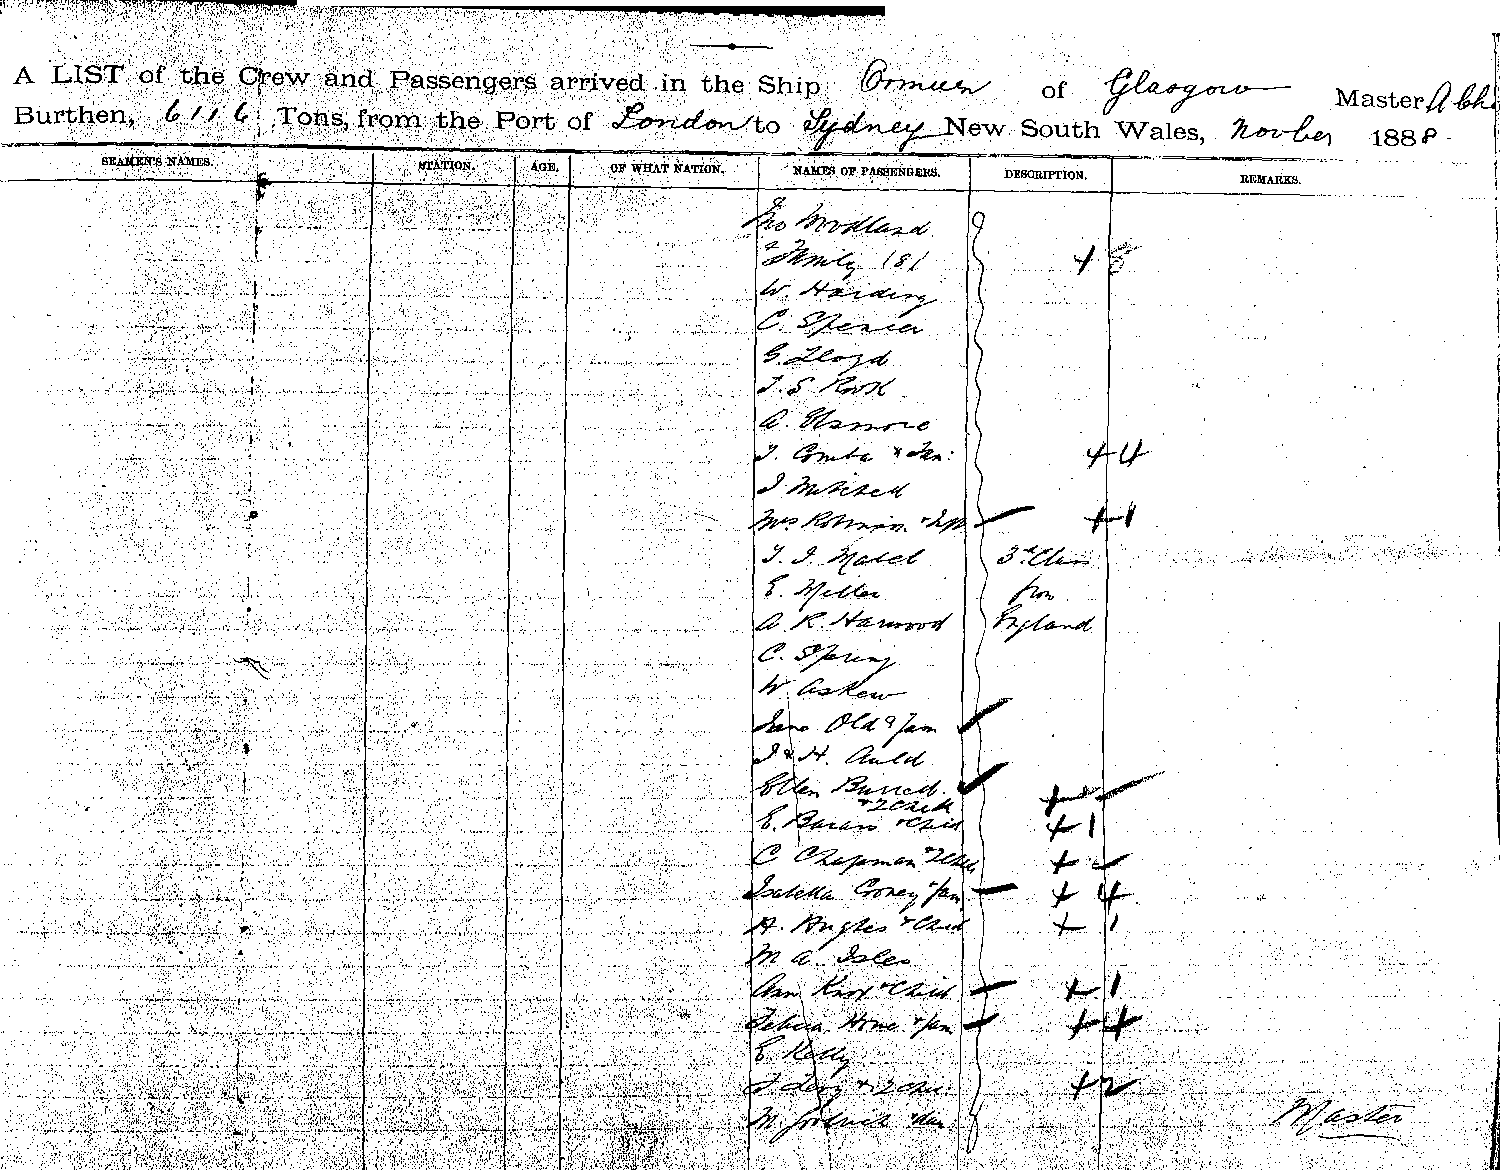 A LIST of the Crew and Passengers arrived in the Ship Ormuz of Glasgow Master
Burthen, 6116 Tons, from the Port of London to Sydney New South Wales, Novber 1888
SEAMEN'S NAMES. STATION. AGE. OF WHAT NATION. NAMES OF PASSENGERS. DESCRIPTION. REMARKS.
Woodland
Family (8) + 8
W. Harding
C. Spencer
G. Lloyd
T. S. Rook
A. Elsmore
T. Combe & + 4
J Mitchell
Mrs Robinson & + 1
T. J. Mabel 3rd Class
E. Miller from
A R. Harwood England
C. Spring
W. Askew
Jane Old & Fam
J & H. Auld
Ellen Burrell
& 2 Child +
E. & Child + 1
C Chapman & 2 Chil + 2
Isabella & Fam + 4
H. Hughes & Child + 1
M A. Isles
Ann Knox & Child + 1
Hone & Fam + 4
E Kelly
Levy & 2 Chi: + 2
M. Master